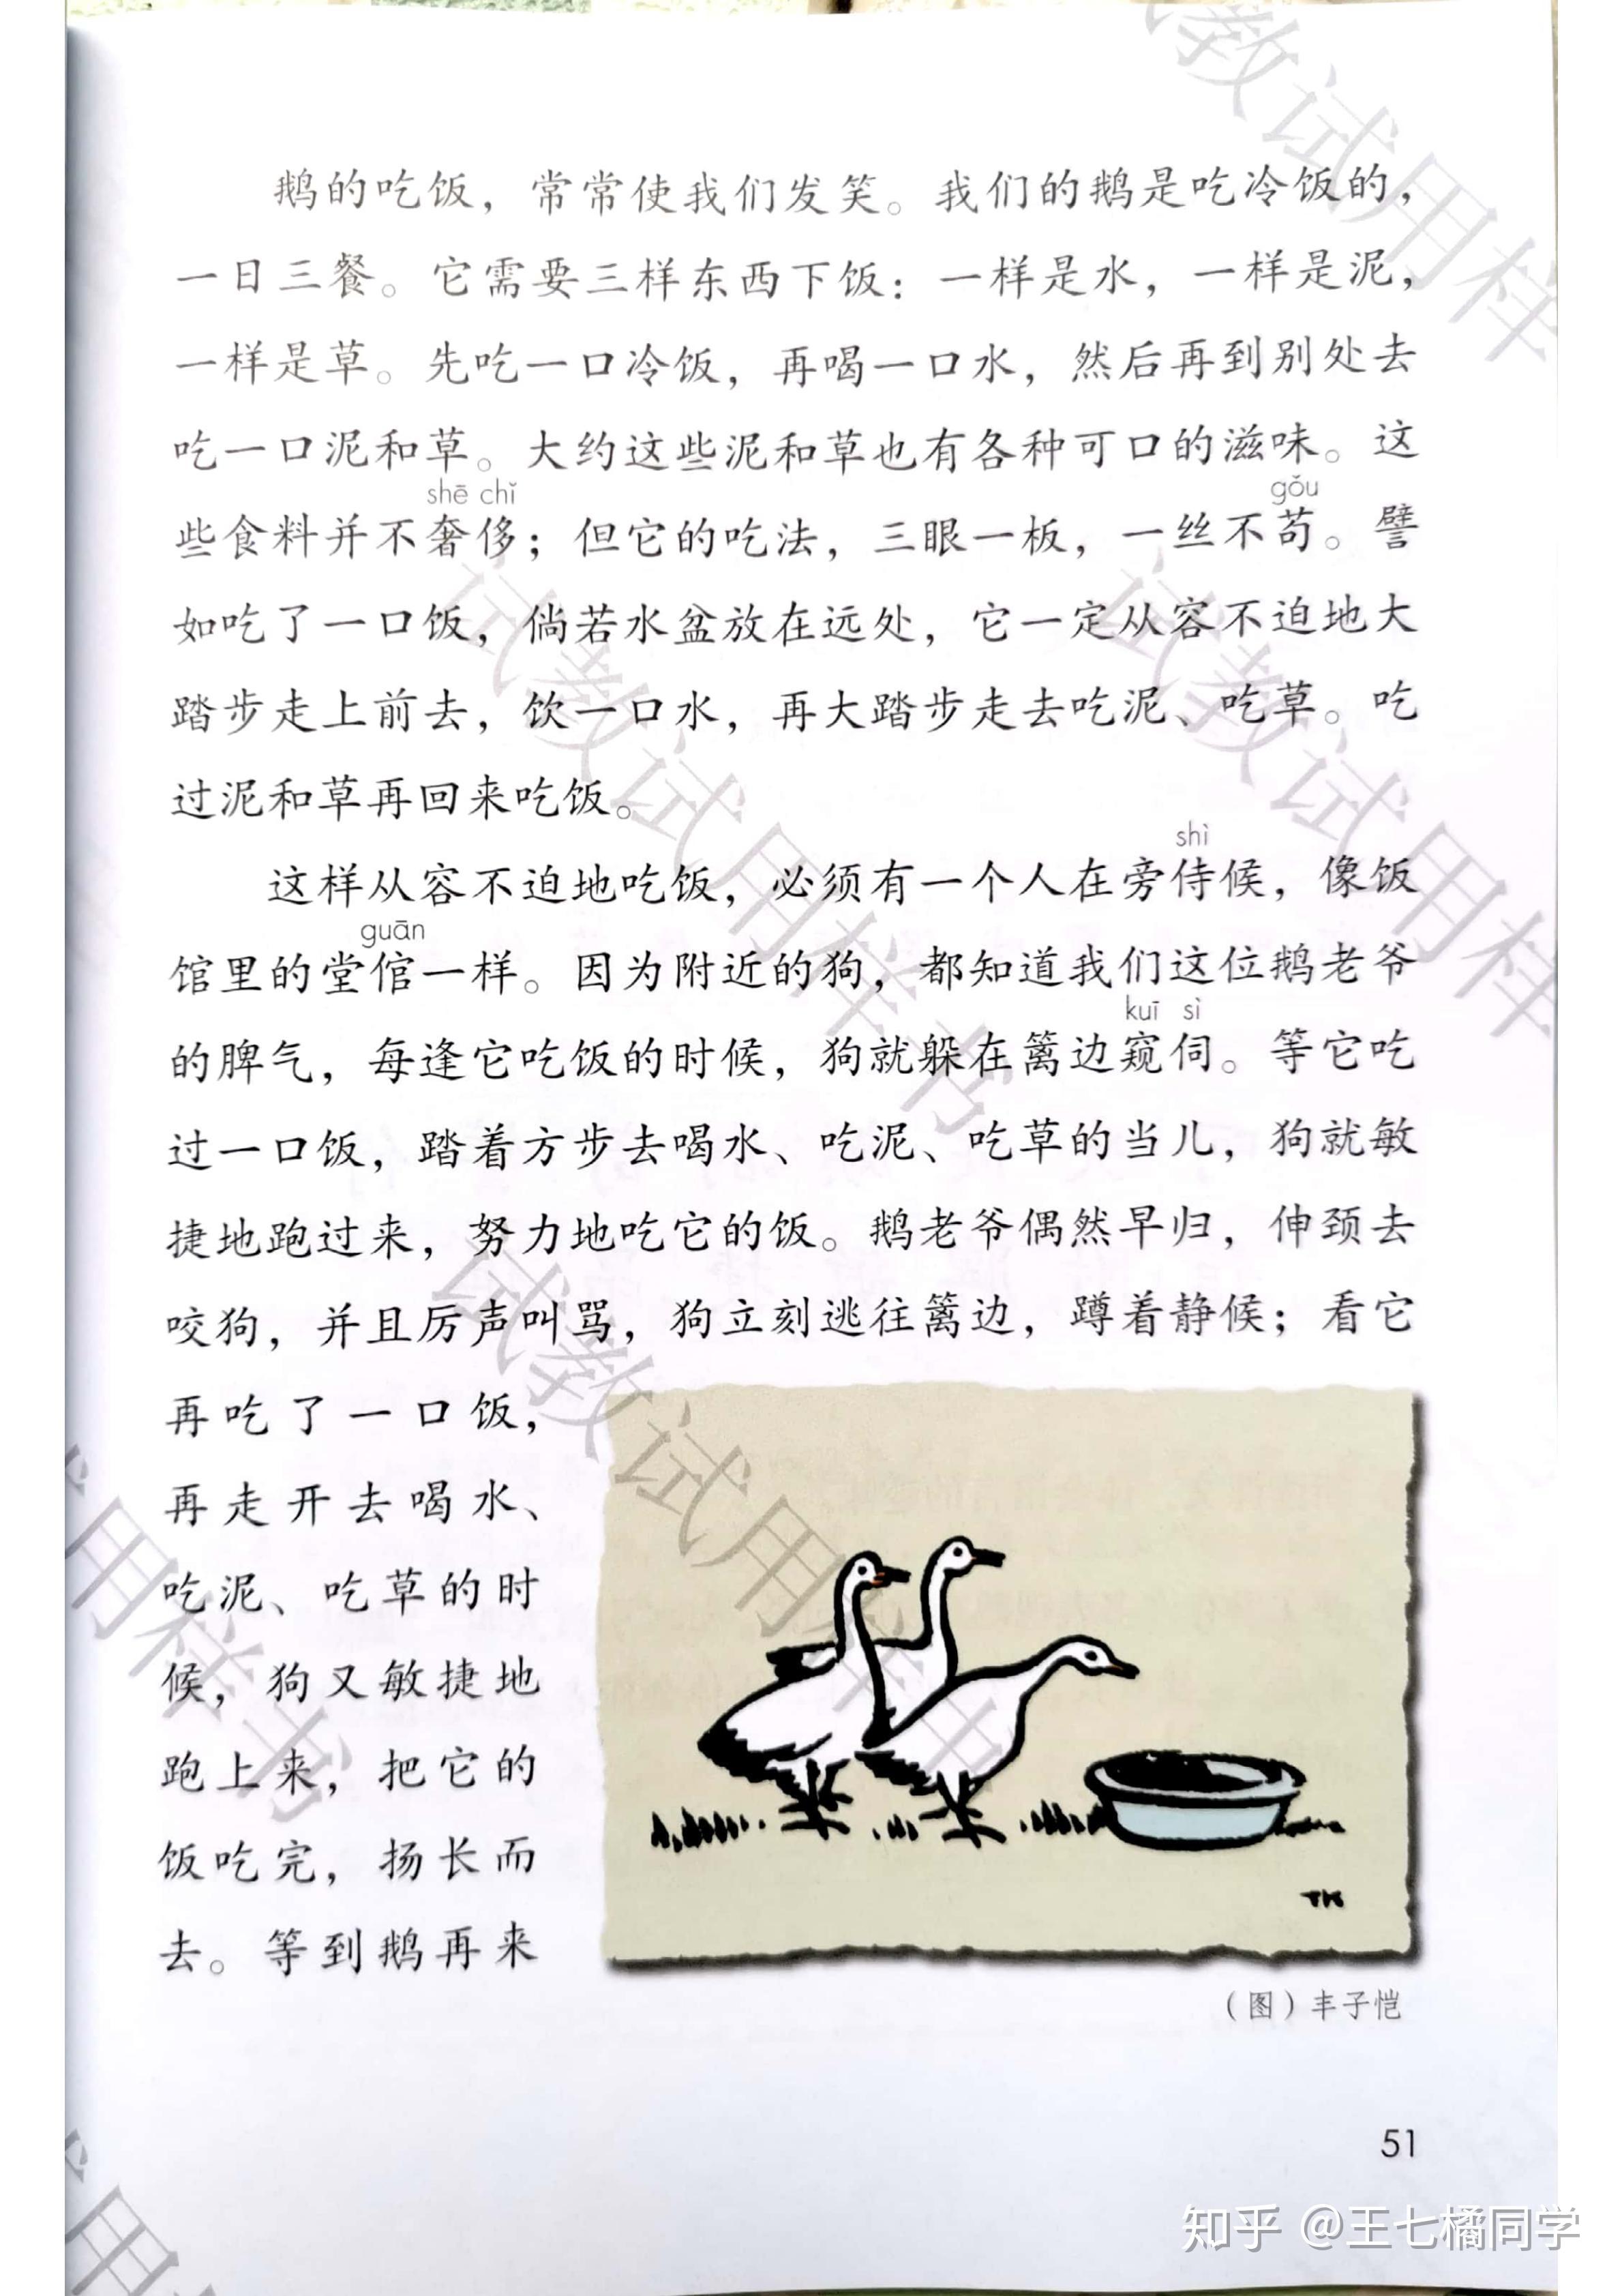 鹅的吃饭，常常使我们发笑。我们的鹅是吃冷饭的，
一日三餐。它需要三样东西下饭：一样是水，一样是泥，
一样是草。先吃一口冷饭，再喝一口水，然后再到别处去
吃一口泥和草。大约这些泥和草也有各种可口的滋味。这
shē chǐ gǒu
些食料并不奢侈；但它的吃法，三眼一板，一丝不苟。譬
如吃了一口饭，倘若水盆放在远处，它一定从容不迫地大
踏步走上前去，饮一口水，再大踏步走去吃泥、吃草。吃
过泥和草再回来吃饭。
shì
这样从容不迫地吃饭，必须有一个人在旁侍候，像饭
guān
馆里的堂倌一样。因为附近的狗，都知道我们这位鹅老爷
kuī sì
的脾气，每逢它吃饭的时候，狗就躲在篱边窥伺。等它吃
过一口饭，踏着方步去喝水、吃泥、吃草的当儿，狗就敏
捷地跑过来，努力地吃它的饭。鹅老爷偶然早归，伸颈去
咬狗，并且厉声叫骂，狗立刻逃往篱边，蹲着静候；看它
再吃了一口饭，
再走开去喝水、
吃泥、吃草的时
候，狗又敏捷地
跑上来，把它的
饭吃完，扬长而
去。等到鹅再来
TK
（图）丰子恺
51
知乎 @王七橘同学
试教试用样书
试教试用样书
试教试用样
试教试用样
试用样书
试用样